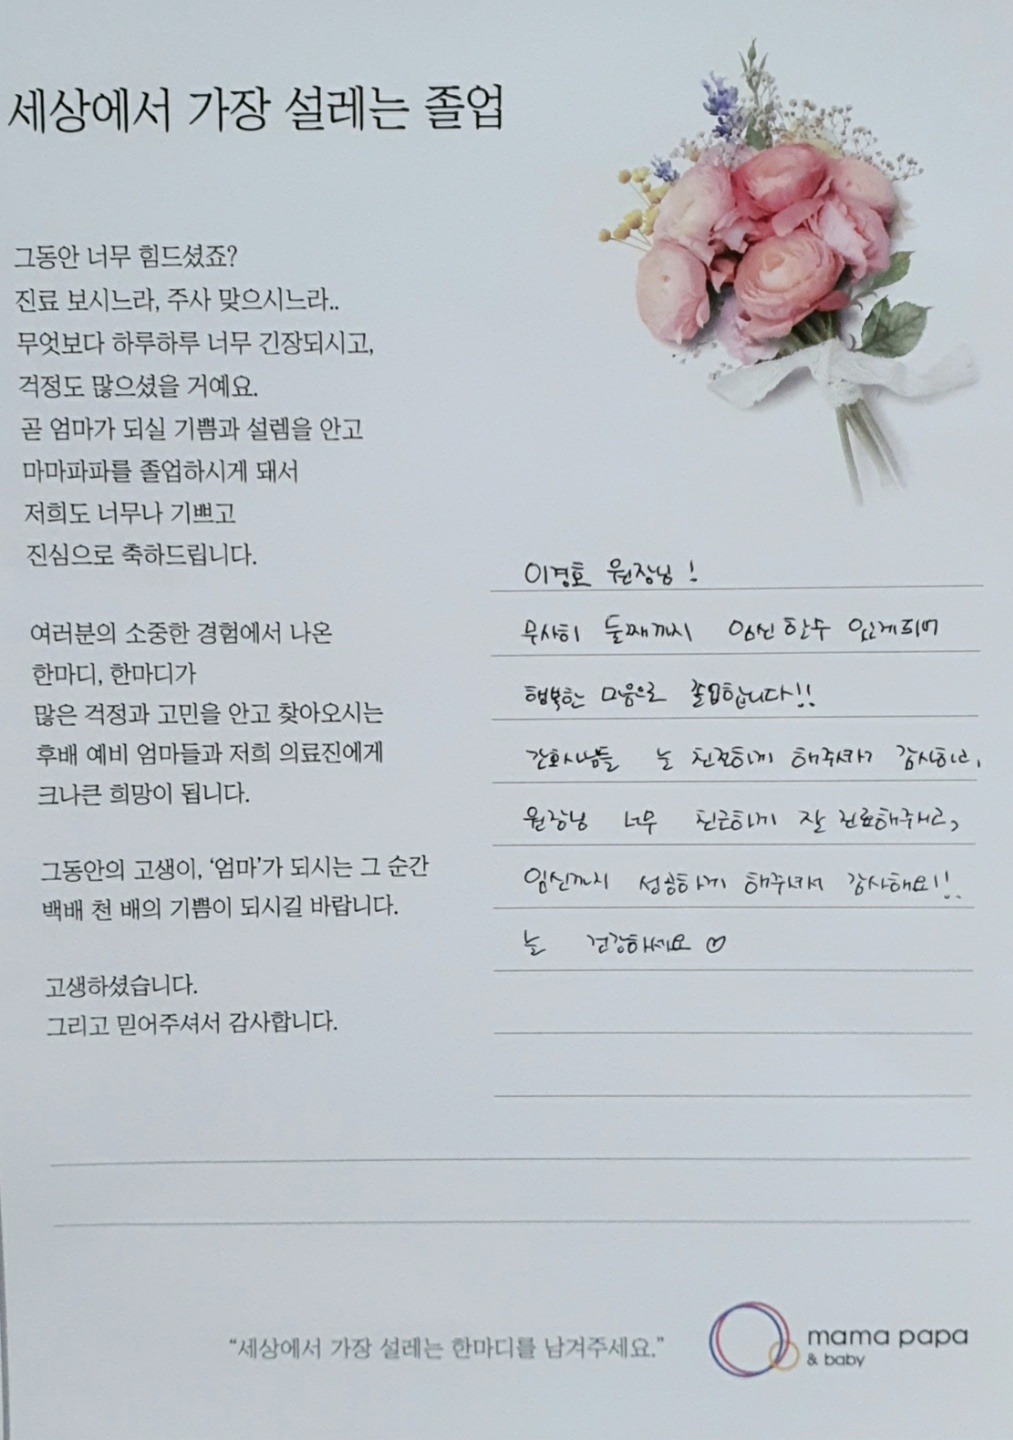 세상에서 가장 설레는 졸업
그동안 너무 힘드셨죠?
진료 보시느라, 주사 맞으시느라..
무엇보다 하루하루 너무 긴장되시고,
걱정도 많으셨을 거예요.
곧 엄마가 되실 기쁨과 설렘을 안고
마마파파를 졸업하시게 돼서
저희도 너무나 기쁘고
진심으로 축하드립니다.
여러분의 소중한 경험에서 나온
한마디, 한마디가
많은 걱정과 고민을 안고 찾아오시는
후배 예비 엄마들과 저희 의료진에게
크나큰 희망이 됩니다.
그동안의 고생이, ‘엄마’가 되시는 그 순간
백배 천 배의 기쁨이 되시길 바랍니다.
고생하셨습니다.
그리고 믿어주셔서 감사합니다.
이경호 원장님 !
무사히 둘째까지 임신 할수 있게되어
행복한 마음으로 졸업합니다!!
간호사님들 늘 친절하게 해주셔서 감사하고,
원장님 너무 친근하게 잘 진료해주시고,
임신까지 성공하게 해주셔서 감사해요!!
늘 건강하세요 ♡
“세상에서 가장 설레는 한마디를 남겨주세요.”
mama papa
& baby